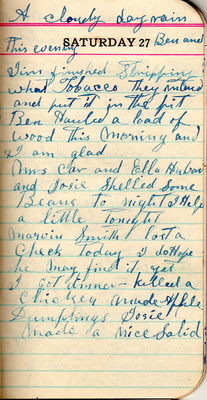 A cloudy day rain
this evening Ben and
SATURDAY 27
Jim finished Stripping
what Tobacco they
and put it in the pit
Ben Hauled a load of
wood This Morning and
I am glad
Mrs Car and Ella
and Josie Shelled Some
Beans to night I Help
a little Tonight
Smith lost a
Check Today I do Hope
he May find it yet
I got dinner Killed a
Chicken Made Apple
Dumplings Josie
Made a nice Salid